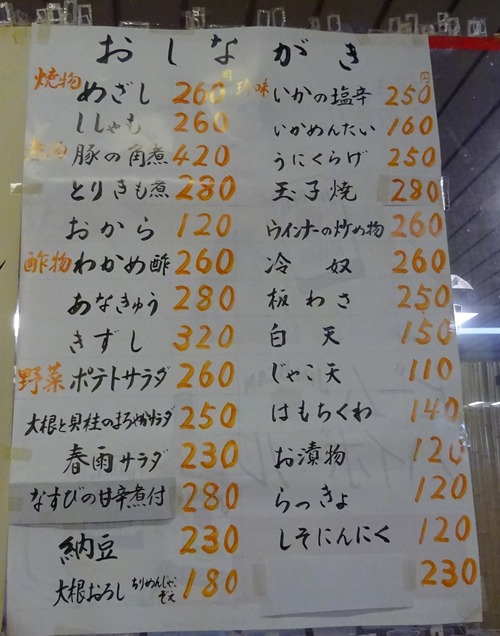 おしながき
焼物 めざし 260円
ししゃも 260
豚の角煮 420
とりきも煮 280
おから 120
酢物 わかめ酢 260
あなきゅう 280
きずし 320
野菜 ポテトサラダ 260
大根と貝柱のまろやかサラダ 250
春雨サラダ 230
なすびの甘辛煮付 280
納豆 230
大根おろし ちりめんじゃこそえ 180
珍味 いかの塩辛 250円
いかめんたい 160
うにくらげ 250
玉子焼 280
ウインナーの炒め物 260
冷奴 260
板わさ 250
白天 150
じゃこ天 110
はもちくわ 140
お漬物 120
らっきょ 120
しそにんにく 120
230